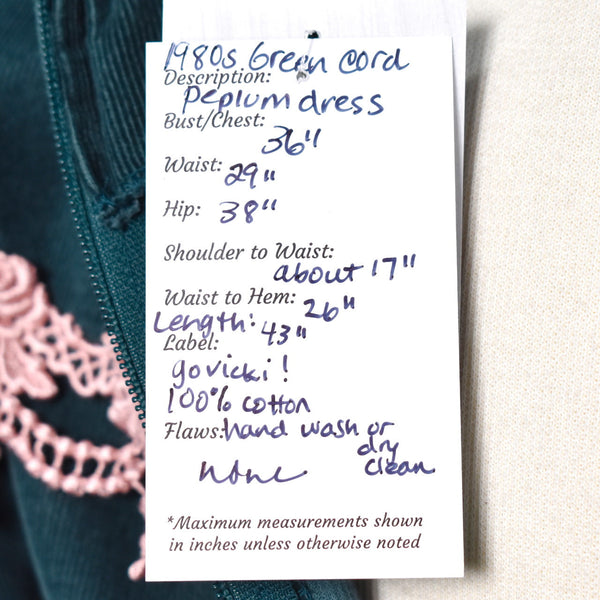 1980s Green cord
Description:
Peplum dress
Bust/Chest:
36"
Waist: 29"
Hip: 38"
Shoulder to Waist:
about 17"
Waist to Hem: 26"
Length: 43"
Label:
go vicki!
100% cotton
Flaws: hand wash or
dry
clean
none
*Maximum measurements shown
in inches unless otherwise noted